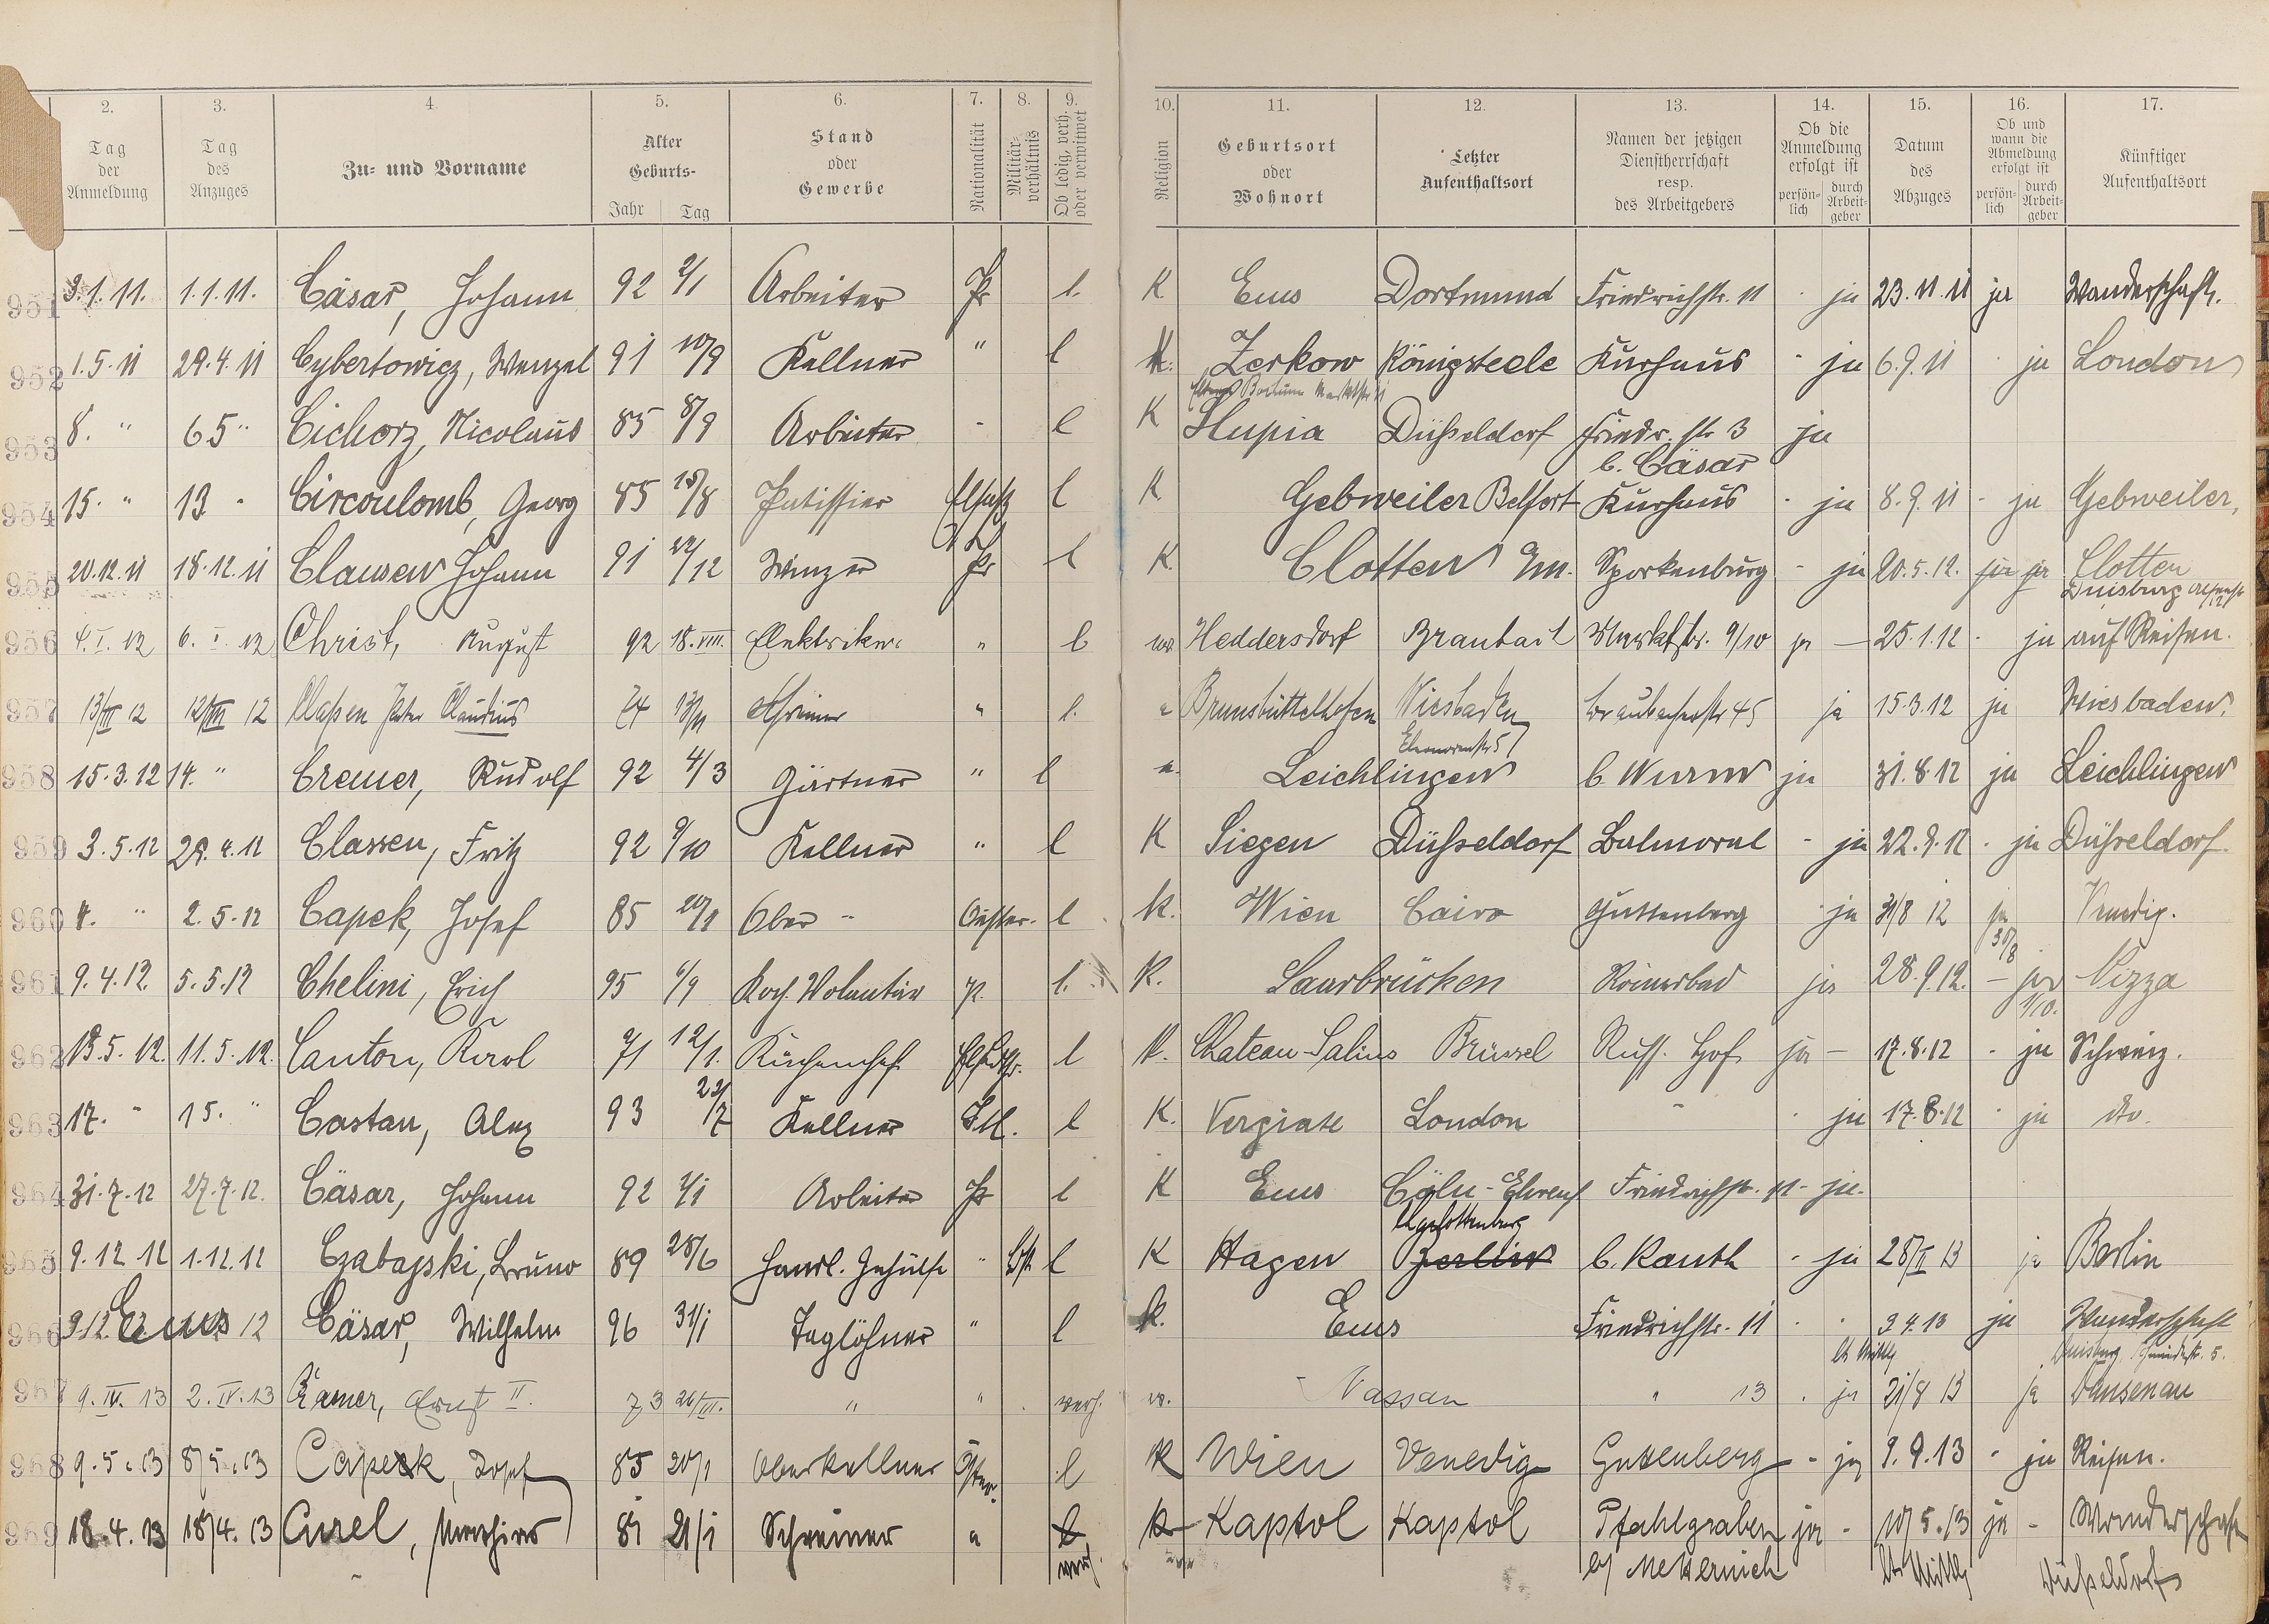 2. 3. 4. 5. 6. 7. 8. 9. 10. 11. 12. 13. 14. 15. 16. 17.
Tag der Anmeldung
Tag des Anzuges
Zu- und Vorname
Alter Geburts- Jahr Tag
Stand oder Gewerbe
Nationalität
Militär-verhältnis
Ob ledig, verh. oder verwitwet
Religion
Geburtsort oder Wohnort
Letzter Aufenthaltsort
Namen der jetzigen Dienstherrschaft resp. des Arbeitgebers
Ob die Anmeldung erfolgt ist persön-lich durch Arbeit-geber
Datum des Abzuges
Ob und wann die Abmeldung erfolgt ist persön-lich durch Arbeit-geber
Künftiger Aufenthaltsort
951 3.1.11. 1.1.11. Cäsar, Johann 92 2/1 Arbeiter Pr l. K Ems Dortmund Friedrichstr. 11 - ja 23.11.11 ja Wanderschaft.
952 1.5.11 29.4.11 Cybertowicz, Wenzel 91 10/9 Kellner " l K. Zerkow Königsteele Kurhaus - ja 6.9.11 - ja London
953 8. " 6 5 " Cichorz, Nicolaus 85 8/9 Arbeiter - l K Slupia Düßeldorf Friedr. str 3 ja
b. Cäsar
954 15. " 13 " Circoulomb, Georg 85 18/8 Patissier Elsaß l K Gebweiler Belfort Kurhaus - ja 8.9.11 - ja Gebweiler,
955 20.12.11 18.12.11 Clausen Johann 91 22/12 Winzer Pr l K Clotten Em. Sporkenburg - ja 20.5.12. ja ja Clotten
Duisburg
956 4.I.12 6.I.12 Christ, August 92 18.VIII. Elektriker " l ev. Heddersdorf Braubach Marktstr. 9/10 ja — 25.1.12 - ja auf Reisen.
957 13/III 12 12/III 12 Claßen Peter Claudius 74 13/11 " l. " Brunsbüttelhofen Wiesbaden Braubacherstr 45 ja 15.3.12 ja Wiesbaden.
Eleonorenstr 5
958 15.3.12 14. " Cremer, Rudolf 92 4/3 Gärtner " l " Leichlingen b. Wurm ja 31.8.12 ja Leichlingen
959 3.5.12 29.4.12 Classen, Fritz 92 9/10 Kellner " l K Siegen Düßeldorf Balmoral - ja 22.9.12 - ja Düßeldorf.
960 4. " 2.5.12 Capek, Josef 85 20/1 Ober - Oester. l K. Wien Cairo Guttenberg - ja 31/8 12 ja Venedig.
30/8
961 9.4.12. 5.5.12 Chelini, Erich 95 6/9 Koch Volontär Pr. l. K. Saarbrücken Römerbad ja 28.9.12. — ja Nizza
1/10.
962 13.5.12. 11.5.12. Canton, Karl 71 12/1. Küchenchef l K. Chateau-Salins Brüssel Russ. Hof ja — 17.8.12 - ja Schweiz.
963 17. " 15. " Castan, Alex 93 23/7 Kellner Itl. l K. Vergiate London " - ja 17.8.12 - ja dto.
964 31.7.12 27.7.12. Cäsar, Johann 92 2/1 Arbeiter Pr l K Ems Cöln-Ehrenf Friedrichstr. 11 - ja.
Charlottenburg
965 9.12 12 1.12.12 Czabajski, Bruno 89 28/6 Handl. Gehülfe " l K Hagen Berlin b. Kauth - ja 28/II 13 ja Berlin
966 9.12. Ems 12 Cäsar, Wilhelm 96 31/1 Taglöhner " l k. Ems Friedrichstr. 11 - - 3 4.13 ja Wanderschaft
Duisburg
967 9.IV.13 2.IV.13 Cramer, Ernst II. 73 26/III. " " verh. ev. Nassau " 13 . ja 21/8 13 ja Dausenau
968 9.5.13 8/5.13 Capek, Josef 85 20/1 Oberkellner Öster. l K Wien Venedig Gutenberg - ja 9.9.13 - ja Reisen.
969 18.4.13 18/4.13 Curel, 81 21/1 Schreiner " l k Kaptol Kaptol Pfahlgraben ja - 10/5.13 ja - Wanderschaft
verh b/ Metternich lt. Mittlg Düßeldorf